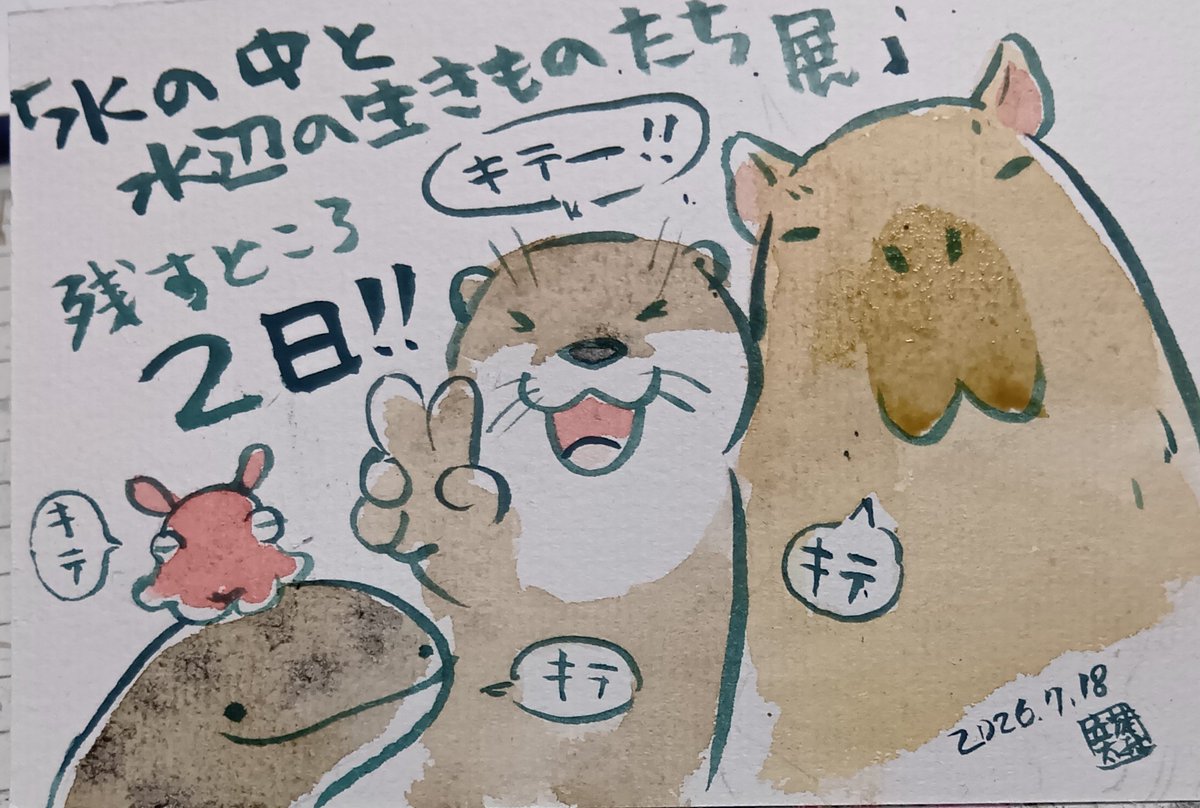 「水の中と
水辺の生きものたち展」
残すところ
2日!!
キテー!!
キテ
キテ
キテ
2026.7.18